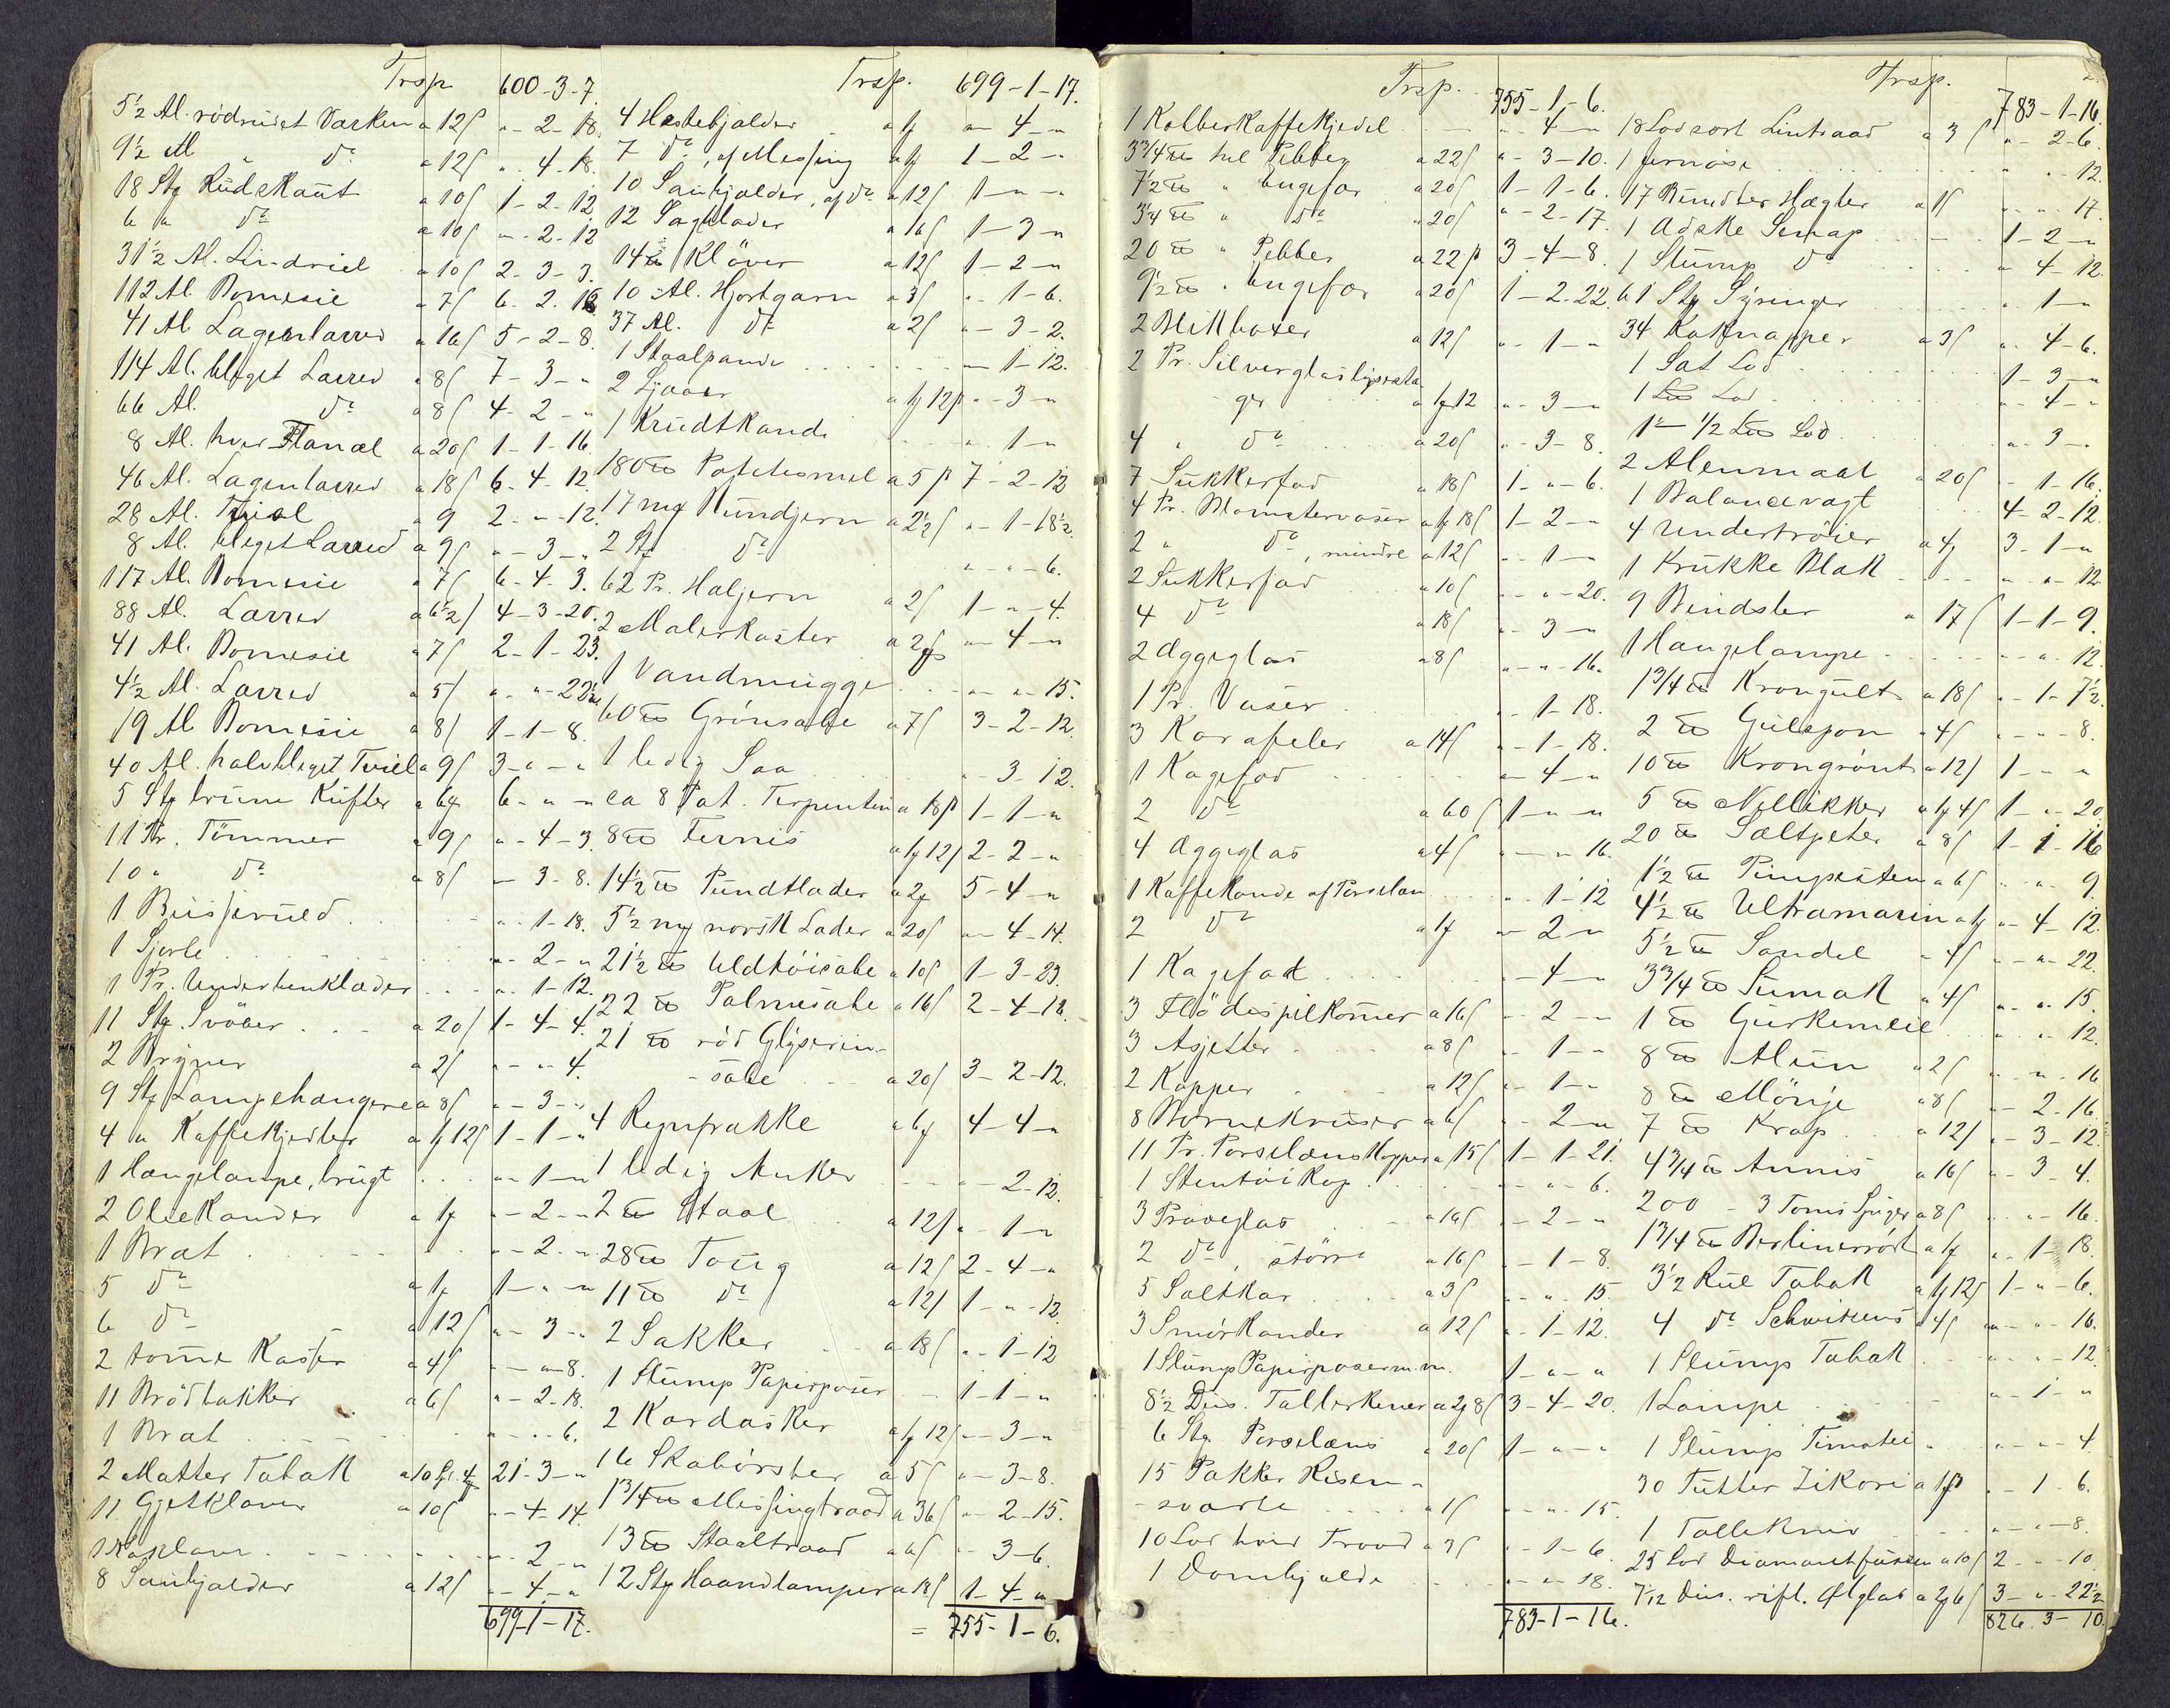 Trsp 600-3-7.
5½ Al. rödrudet Værken a 12ſ „-2-18.
9½ Al „ do a 12ſ „-4-18.
18 Stk Rudekant a 10ſ 1-2-12
6 „ do a 10ſ „-2-12
31½ Al. a 10ſ 2-3-3.
112 Al. Bomesie a 7ſ 6-2-16
41 Al. Lagenlærred a 16ſ 5-2-8.
114 Al. bleget Lærred a 8ſ 7-3-„
66 Al. do a 8ſ 4-2-„
8 Al. hvid Flanel a 20ſ 1-1-16.
46 Al. Lagenlærred a 18ſ 6-4-12.
28 Al. Tviel a 9 2-„-12.
8 Al. bleget Lærred a 9ſ „-3-„
117 Al. Bomesie a 7ſ 6-4-3.
88 Al. Lærred a 6½ſ 4-3-20.
41 Al. Bomesie a 7ſ 2-1-23.
4½ Al. Lærred a 5ſ „-„-22½
19 Al Bomesie a 8ſ 1-1-8.
40 Al. halvbleget Tviel a 9ſ 3-„-„
5 Stk brune Kufter a 6 6-„-„
11 Tömmer a 9ſ „-4-3.
10 „ do a 8ſ „-3-8.
1 „-1-18.
1 Sjerte „-2-„
1 Pr. Underbenklæder „-1-12.
11 Stk. Svöber a 20ſ 1-4-4.
2 Bryner a 2ſ „-„-4.
9 Stk Lampehængere a 8ſ „-3-„
4 „ Kaffekjedler a 1 12ſ 1-1-„
1 Hængelampe, brugt „-1-„
2 Oliekander a 1 „-2-„
1 Bræt „-2-„
5 do a 1 1-„-„
6 do a 12ſ „-3-„
2 tomme Kasser a 4ſ „-„-8.
11 Brödbakker a 6ſ „-2-18.
1 Bræt „-„-6.
2 Matter Tabak a 10 21-3-„
11. Gjetklaver a 10ſ „-4-14.
1 „-2-„
8 Saubjælder a 12ſ „-4-„
699-1-17.
Trsp. 699-1-17.
4 Hestebjælder a 1 „-4-„
7 do, af Messing a 1 1-2-„
10 Saubjælder, af do a 12ſ 1-„-„
12 Sagblader a 16ſ 1-3-„
14 ℔ Klöver a 12ſ 1-2-„
10 Al. Hjortgarn a 3ſ „-1-6.
37 Al. do a 2ſ „-3-2.
1 Staalpande „-1-12.
2 Ljaaer a 1 12ſ „-3-„
1 Krudtkande „-1-„
180 ℔ Potetesmel a 5ſ 7-2-12
17 Rundjern a 2½ſ „-1-18½.
2 Stk do „-„-6.
62 Pr. Hæljern a 2ſ 1-„-4.
2 Malerkoster a 2 „-4-„
1 Vandmugge „-„-15.
60 ℔ Grönsæbe a 7ſ 3-2-12.
1 ledig Saa „-3-12.
ca 8 Pot. Terpentin a 18ſ 1-1-„
8 ℔ Fernis a 1 12ſ 2-2-„
14½ ℔ Pundtlæder a 2 5-4-„
5½ norsk Læder a 20ſ „-4-14.
21½ ℔ Uldtöisæbe a 10ſ 1-3-23.
22 ℔ Palmesæbe a 16ſ 2-4-16.
21 ℔ röd Glyserin-
-sæbe a 20ſ 3-2-12.
4 Regnfrakke a 6 4-4-„
1 ledig Anker „-2-12.
2 ℔ Staal a 12ſ „-1-„
28 ℔ Toug a 12ſ 2-4-„
11 ℔ do a 12ſ 1-„-12.
2 Sækker a 18ſ „-1-12
1 Stump Papirposer 1-1-„
2 Kardæsker a 1 12ſ „-3-„
16 Skobörster a 5ſ „-3-8.
1¾ ℔ Messingtraad a 36ſ „-2-15.
13 ℔ Staaltraad a 6ſ „-3-6.
12 Stk Haandlamper a 18ſ 1-4-„
= 755-1-6.
Trsp. 755-1-6.
1 Kobberkaffekjedel „-4-„
3¾ ℔ hel Pebber a 22ſ „-3-10.
7½ ℔ „ Ingefær a 20ſ 1-1-6.
3¼ ℔ „ do a 20ſ „-2-17.
20 ℔ „ Pebber a 22ſ 3-4-8.
9½ ℔ „ Ingefær a 20ſ 1-2-22.
2 Blikboxer a 12ſ „-1-„
2 Pr. Silverglaslysesta
ger a 1 12 „-3-„
4 „ do a 20ſ „-3-8.
7 Sukkerfad a 18ſ 1-„-6.
4 Pr. Blomstervaser a 1 18ſ 1-2-„
2 „ do, mindre a 12ſ „-1-„
2 Sukkerfad a 10ſ „-„-20.
4 do a 18ſ „-3-„
2 Æggeglas a 8ſ „-„-16.
1 Pr. Vaser „-1-18.
3 Karafeler a 14ſ „-1-18.
1 Kagefad „-4-„
2 do a 60ſ 1-„-„
4 Æggeglas a 4ſ „-„-16.
1 Kaffekande af Porselæn „-1-12
2 do a 1 „-2-„
1 Kagefad „-4-„
3 Flödespilkommer a 16ſ „-2-„
3 Asjetter a 8ſ „-1-„
2 Kopper a 12ſ „-1-„
8 Bornekruser a 6ſ „-2-„
11 Pr. Porselæns Kopper a 15ſ 1-1-21.
1 Stentöi Kop „-„-6.
3 Pröveglas a 16ſ „-2-„
2 do, större a 16ſ „-1-8.
5 Saltkar a 3ſ „-„-15
3 Smörkander a 12ſ „-1-12.
1 Stump Papirposer m.m. 1-„-„
8½ Dus. Tallerkener a 2 8ſ 3-4-20.
6 Stk Porselæns a 20ſ 1-„-„
15 Pakker Risen-
-sværte a 1ſ „-„-15.
10 Lod hvid Traad a 3ſ „-1-6.
1 Dombjælde „-„-18.
783-1-16.
Trsp. 783-1-16.
18 Lod sort Lintraad a 3ſ „-2-6.
1 „-„-12.
17 Bundter Hægter a 1ſ „-„-17.
1 Adske Senap 1-2-„
1 Stump do „-4-12.
61 Stk Syringer „-1-„
34 Kotknapper a 3ſ „-4-6.
1 Sat Lod 1-3-„
1 Lod „-4-„
1 1/2 Lod „-3-„
2 Alenmaal a 20ſ „-1-16.
1 Balancevægt 4-2-12.
4 Undertröier a 4 3-1-„
1 Krukke Blæk „-„-12
9 Bindsler a 17ſ 1-1-9.
1 Hængelampe „-„-12.
1¾ ℔ Krongult a 18ſ „-1-7½.
2 ℔ Gulspon a 4ſ „-„-8.
10 ℔ Krongrönt a 12ſ 1-„-„
5 ℔ Nellikker a 1 4ſ 1-„-20.
20 ℔ Saltpeter a 8ſ 1-1-16
1½ ℔ Pimpesten a 6ſ „-„-9.
4½ ℔ Ultramarin a 1 „-4-12.
5½ ℔ Sandel a 4ſ „-„-22.
3¾ ℔ Sumak a 4ſ „-„-15.
1 ℔ Gurkemeie „-„-12.
8 ℔ Alun a 2ſ „-„-16
8 ℔ Mönje a 8ſ „-2-16.
7 ℔ Krap a 12ſ „-3-12.
4¾ ℔ Annis a 16ſ „-3-4.
200 - 3 Toms Spiger a 8ſ „-„-16.
1¾ ℔ Berlinerrödt a 1 „-1-18.
3½ Rul Tabak a 1 12ſ 1-„-6.
4 do Schwitsens a 4ſ „-„-16.
1 Stump Tabak „-„-12.
1 Lampe „-1-„
1 Stump Timotei „-„-4.
30 Tutter Zikori a 1ſ „-1-6.
1 Tællekniv „-„-8.
25 Lod Diamantfarve a 10ſ 2-„-10
7/12 Dus. rifl. Ølglas a 2 6ſ 3-„-22½
826-3-10.